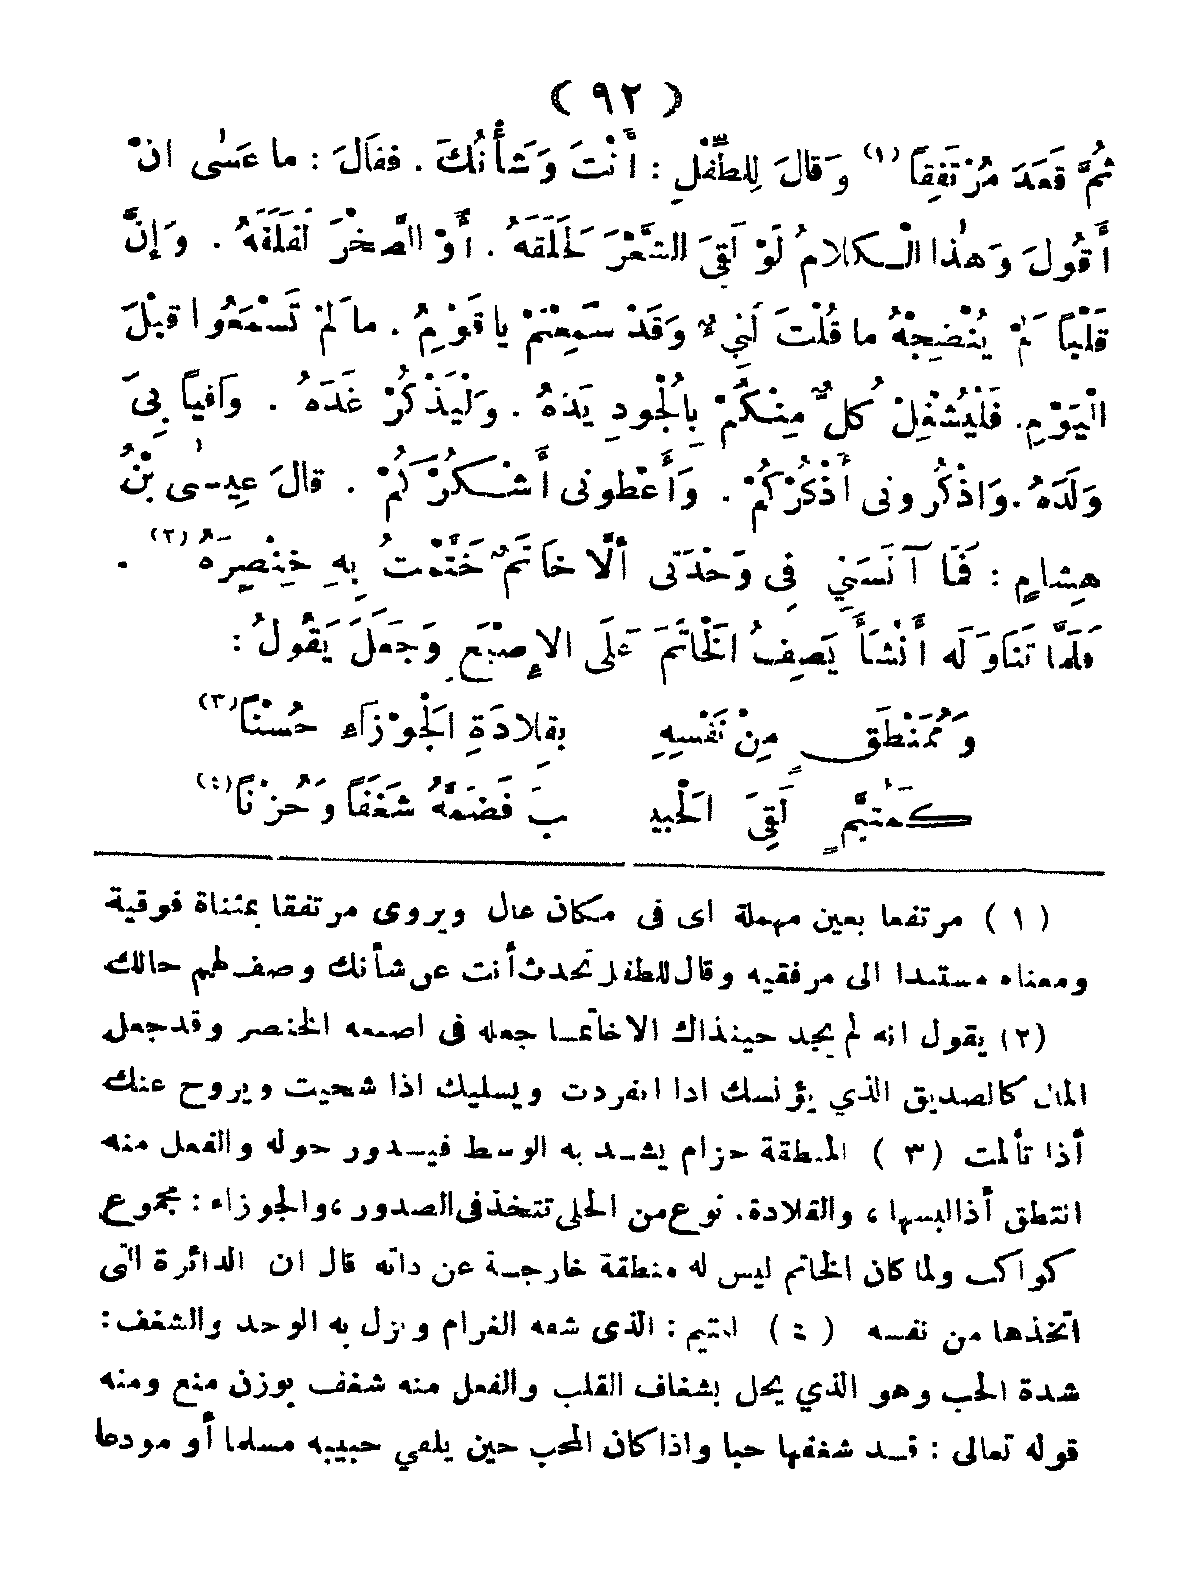 ( ٩٢ )
ثُمَّ قَعَدَ مُرْتَفِقاً (١) وَقالَ لِلطِّفْلِ : أَنْتَ وَشَأْنُكَ . فقالَ : ما عَسٰى انْ
أَقُولَ وَهٰذا الْكلامُ لَوْ لَقِيَ الشَّعْرَ لَحَلَقَهُ . أَوْ الصَّخْرَ لَفَلَقَهُ . وَإنَّ
قَلْباً لَمْ يُنْضِجْهُ ما قُلْتَ لَنِيءٌ وَقَدْ سَمِعْتُمْ يا قَوْمِ . ما لَمْ تَسْمَعُوا قبْلَ
الْيَوْمِ . فَلْيُشْغِلْ كُلٌّ مِنْكُمْ بِالْجُودِ يَدَهُ . وَلْيَذْكُرْ غَدَهُ . وَاقياً بِيَ
وَلَدَهُ . وَاذْكُرونى أَذْكُرْكُمْ . وَأَعْطونى أَشْكُرْكُمْ . قالَ عِيسٰى بْنُ
هِشامٍ : فَمَا آنَسَنِي فِى وَحْدَتى أَلَّا خاتَمٌ خَتَّمْتُ بِهِ خِنْصِرَهُ (٢) .
فَلَمَّا تَنَاوَلَه أَنْشَأَ يَصِفُ الْخاتَمَ عَلَى الإِصْبَعِ وَجَعَلَ يَقُولُ :
وَمُمَنْطَقٍ مِنْ نَفْسِهِ بِقِلادَةِ الْجَوْزَآءِ حُسْنَاً (٣)
كَمُتَيَّمٍ لَقِيَ الْحَبِيـ بَ فَضَمَّهُ شَغَفَاً وَحُزْنَاً (٤)
( ١ ) مرتفعا بعين مهملة اى فى مكان عال ويروى مرتفقا بمثناة فوقية
ومعناه مستندا الى مرفقيه وقال للطفل تحدث أنت عن شأنك وصف لهم حالك
(٢) يقول انه لم يجد حينذاك الا خاتما جعله فى اصبعه الخنصر وقد جعل
المال كالصديق الذي يؤنسك اذا انفردت ويسليك اذا شجيت ويروح عنك
أذا تألمت ( ٣ ) المنطقة حزام يشد به الوسط فيدور حوله والفعل منه
انتطق أذا لبسها ، والقلادة . نوع من الحلى تتخذ فى الصدور ، والجوزاء : مجموع
كواكب ولما كان الخاتم ليس له منطقة خارجة عن ذاته قال ان الدائرة التى
اتخذها من نفسه ( ٤ ) المتيم : الذى شفه الغرام ونزل به الوجد والشغف :
شدة الحب وهو الذي يحل بشغاف القلب والفعل منه شغف بوزن منع ومنه
قوله تعالى : قد شغفها حبا واذا كان المحب حين يلقي حبيبه مسلما أو مودعا